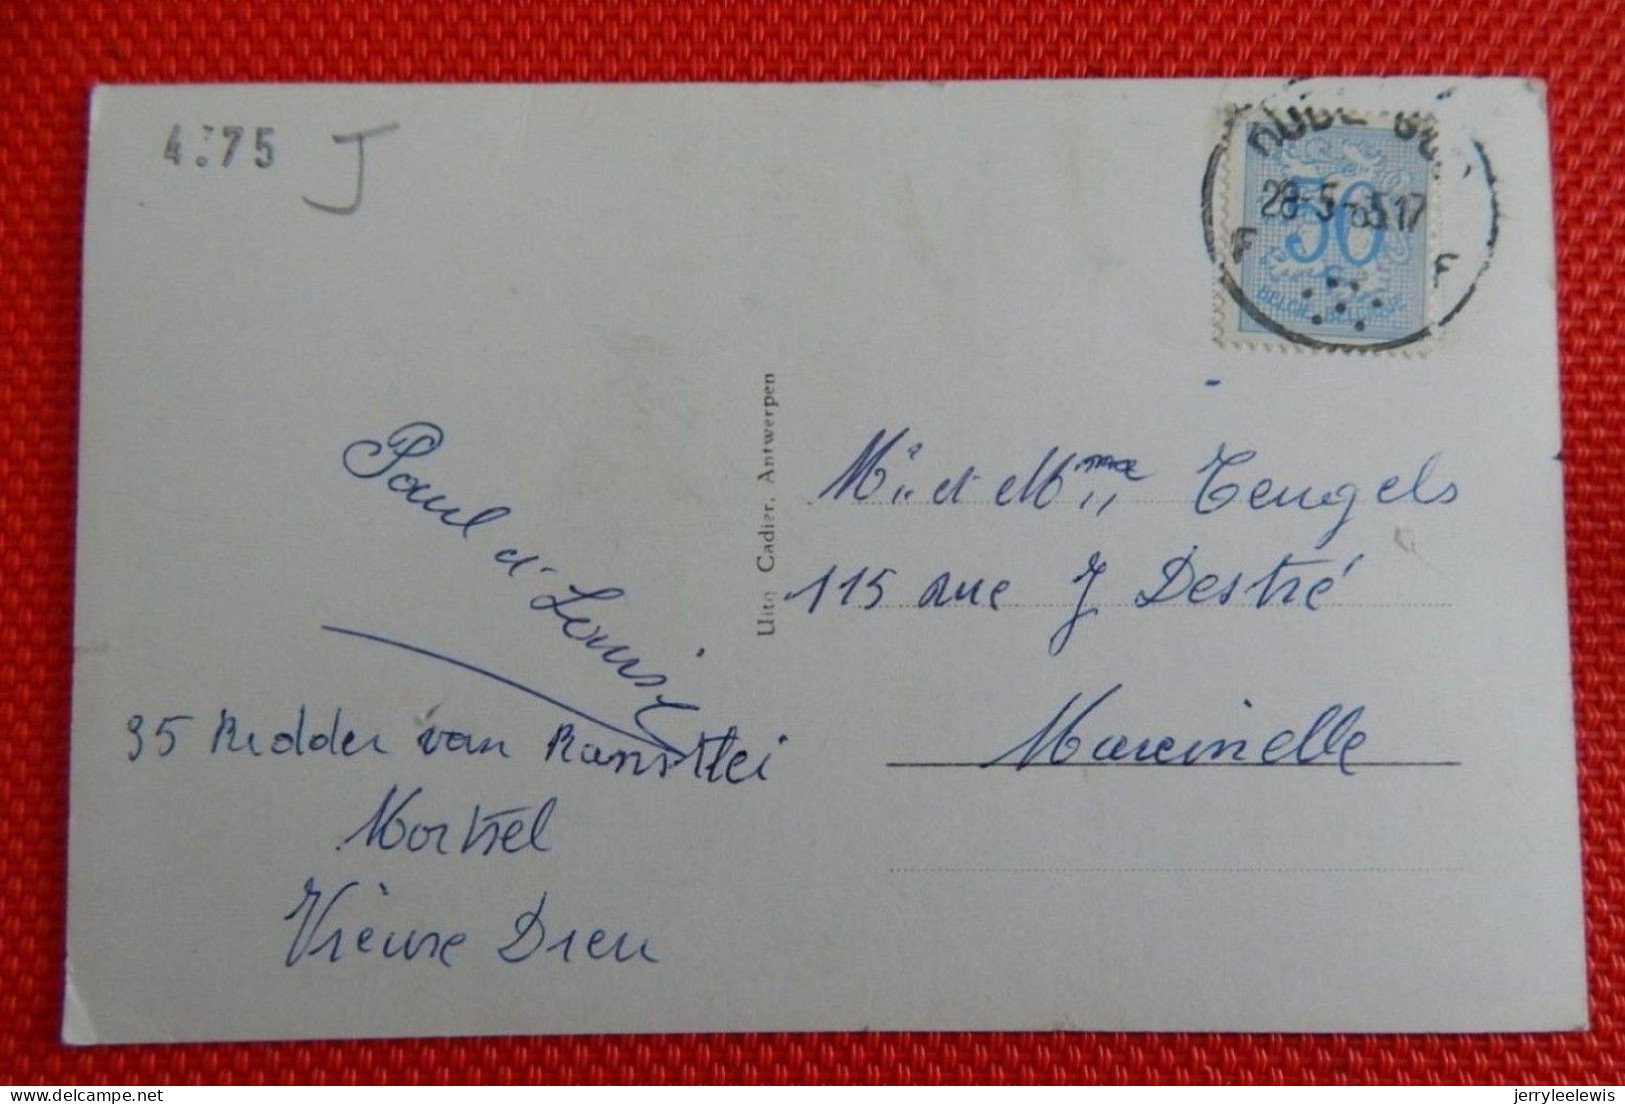 4.75 J
28-5-65.17
F F
50
BELGIË-BELGIQUE
Uitg Cadier, Antwerpen
Paul et Louise
95 Ridder van Ranstlei
Mortsel
Vieux Dieu
Mr et Mme Tengels
115 rue J Destré
Marcinelle
jerryleelewis